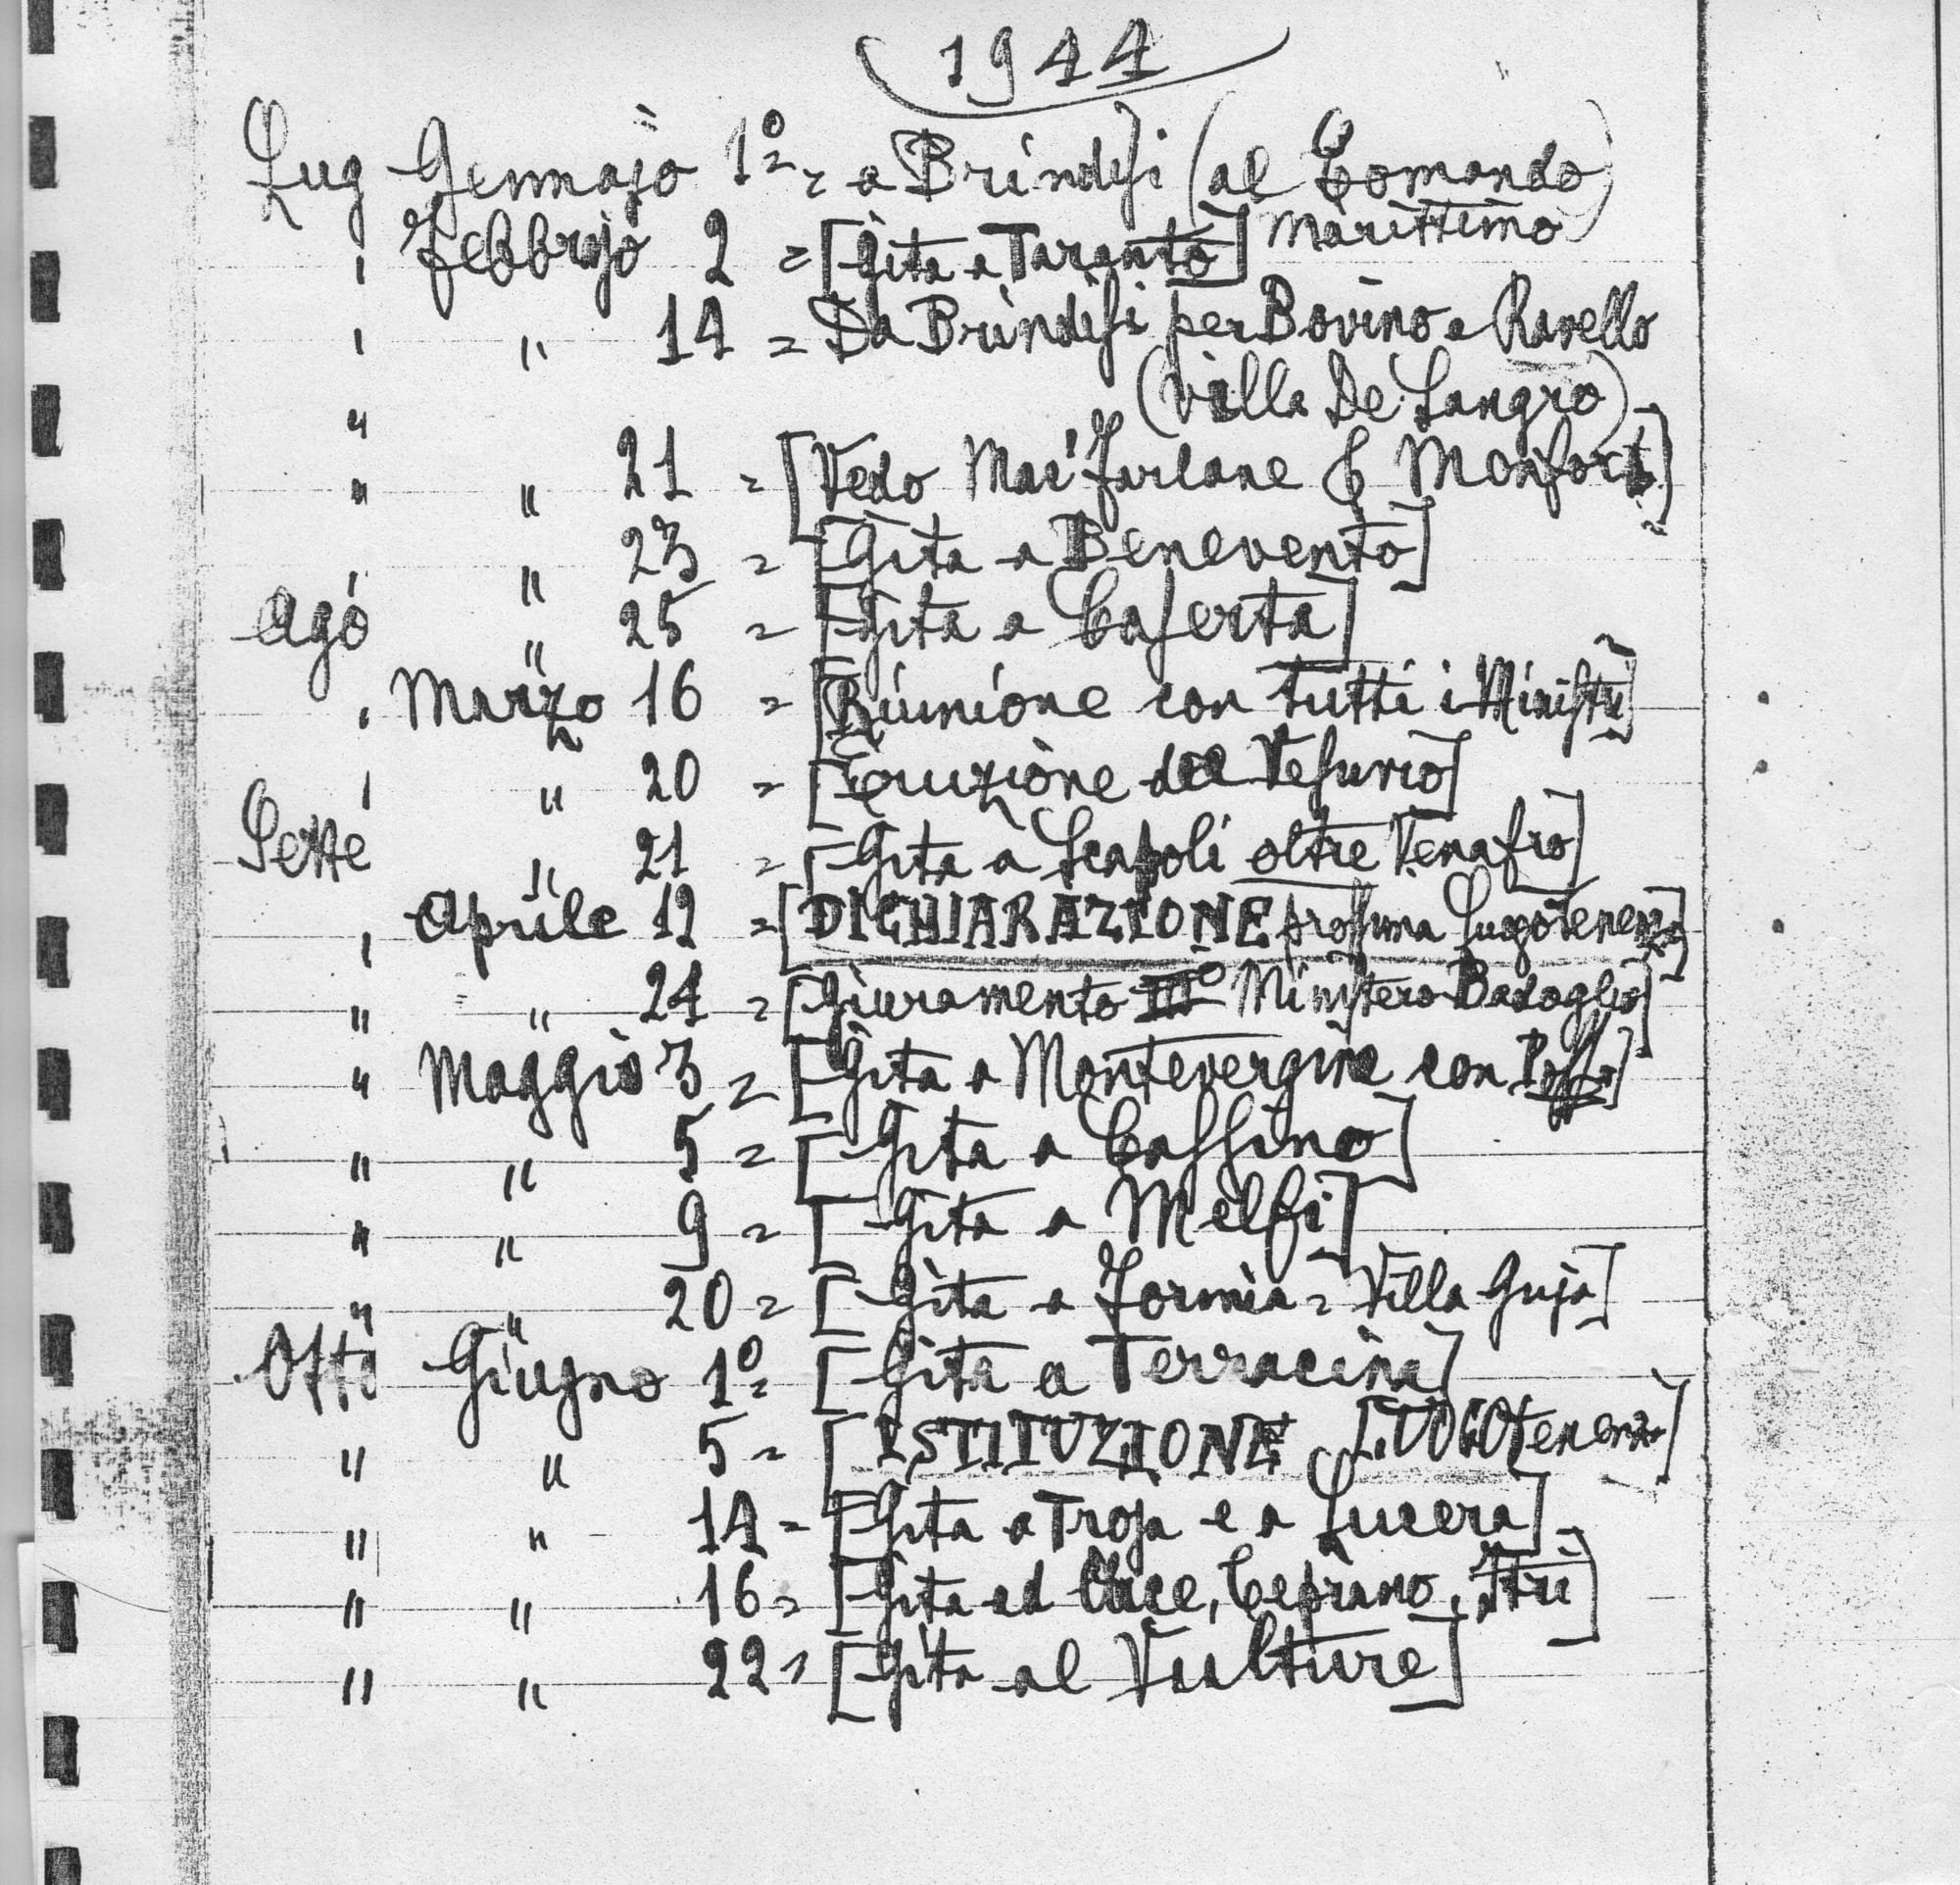 1944
Lug Gennajo 1º = a Brindisi (al Comando
" Febbrajo 2 = [Gita a Taranto] Marittimo)
" " 14 = Da Brindisi per Bovino a Ravello
" (Villa De Sangro)
" " 21 = [Vedo Mac'Farlane & Monfort]
" " 23 = [Gita a Benevento]
Ago " 25 = [Gita a Caserta]
" Marzo 16 = [Riunione con tutti i Ministri]
" " 20 = [Eruzione del Vesuvio]
Sette " 21 = [Gita a Scapoli oltre Venafro]
" Aprile 12 = [DICHIARAZIONE prossima Luogotenenza]
" " 24 = [Giuramento IIIº Ministero Badoglio]
" Maggio 3 = [Gita a Montevergine con]
" " 5 = [Gita a Cassino]
" " 9 = [Gita a Melfi]
" " 20 = [Gita a Formia = Villa Guja]
Otto Giugno 1º = [Gita a Terracina]
" " 5 = [ISTITUZIONE LUOGOtenenza]
" " 14 = [Gita a Troja e a Lucera]
" " 16 = [Gita ad Arce, Ceprano, Itri]
" " 22 = [Gita al Vulture]